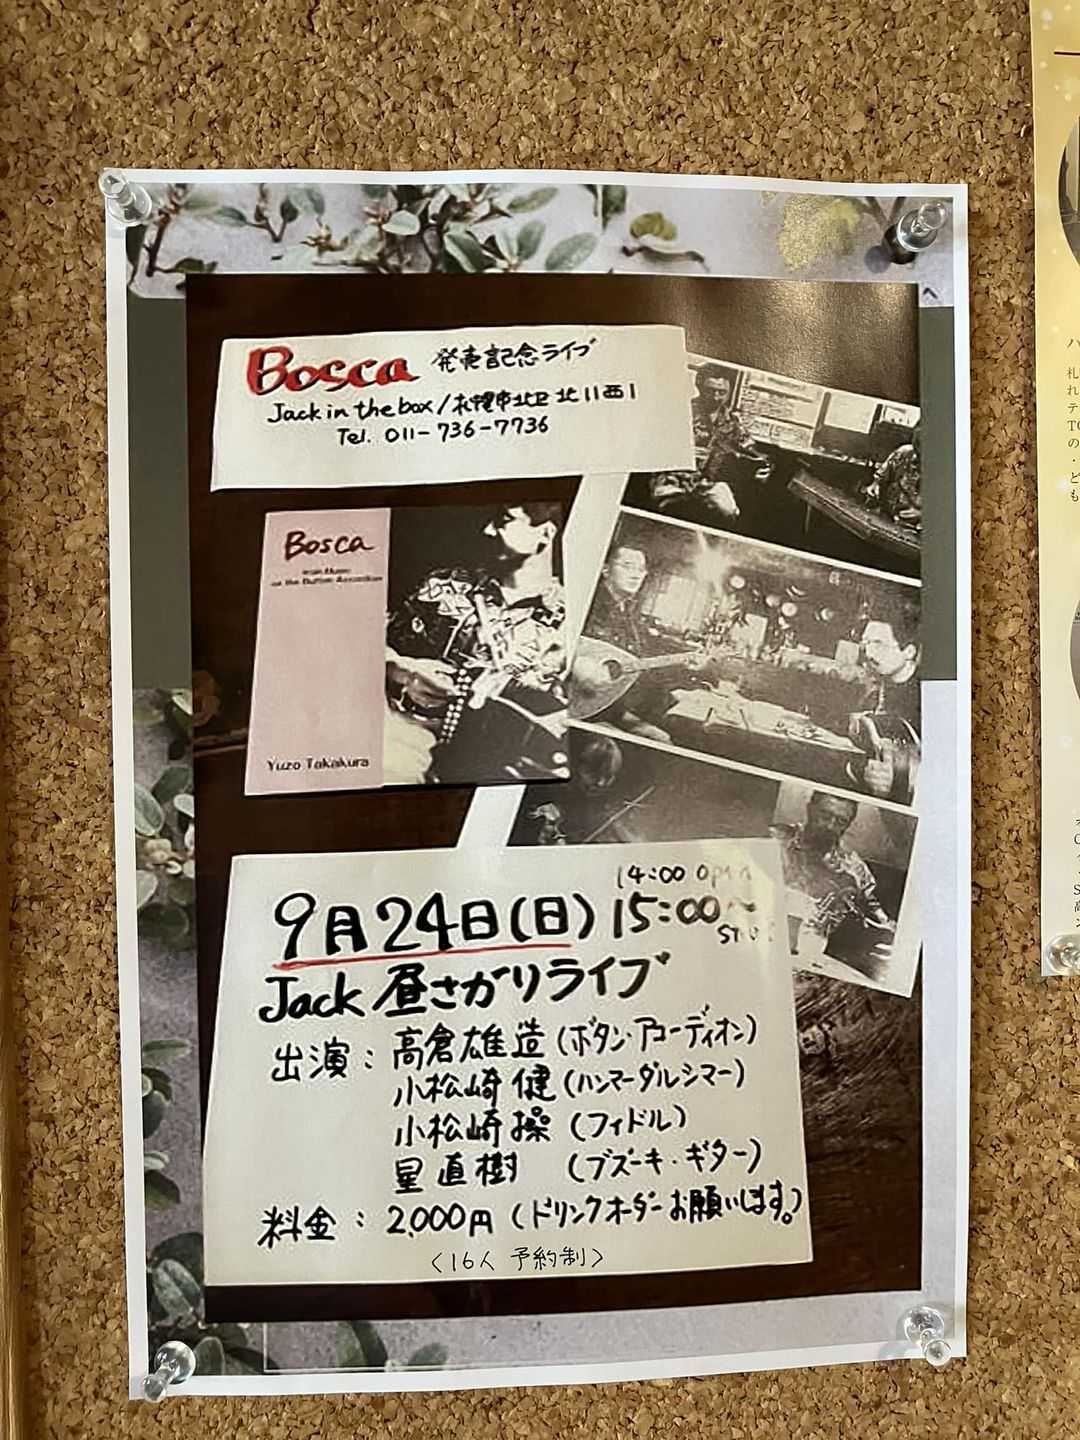 Bosca 発売記念ライブ
Jack in the box/札幌市北区北11西1
Tel. 011-736-7736
Bosca
Irish Music
on the Button Accordion
Yuzo Takakura
14:00 open
9月24日(日) 15:00〜
Jack 昼さがりライブ
出演：高倉雄造(ボタン・アコーディオン)
小松崎健(ハンマーダルシマー)
小松崎操(フィドル)
星直樹(ブズーキ・ギター)
料金：2,000円(ドリンクオーダーお願いします。)
〈16人 予約制〉